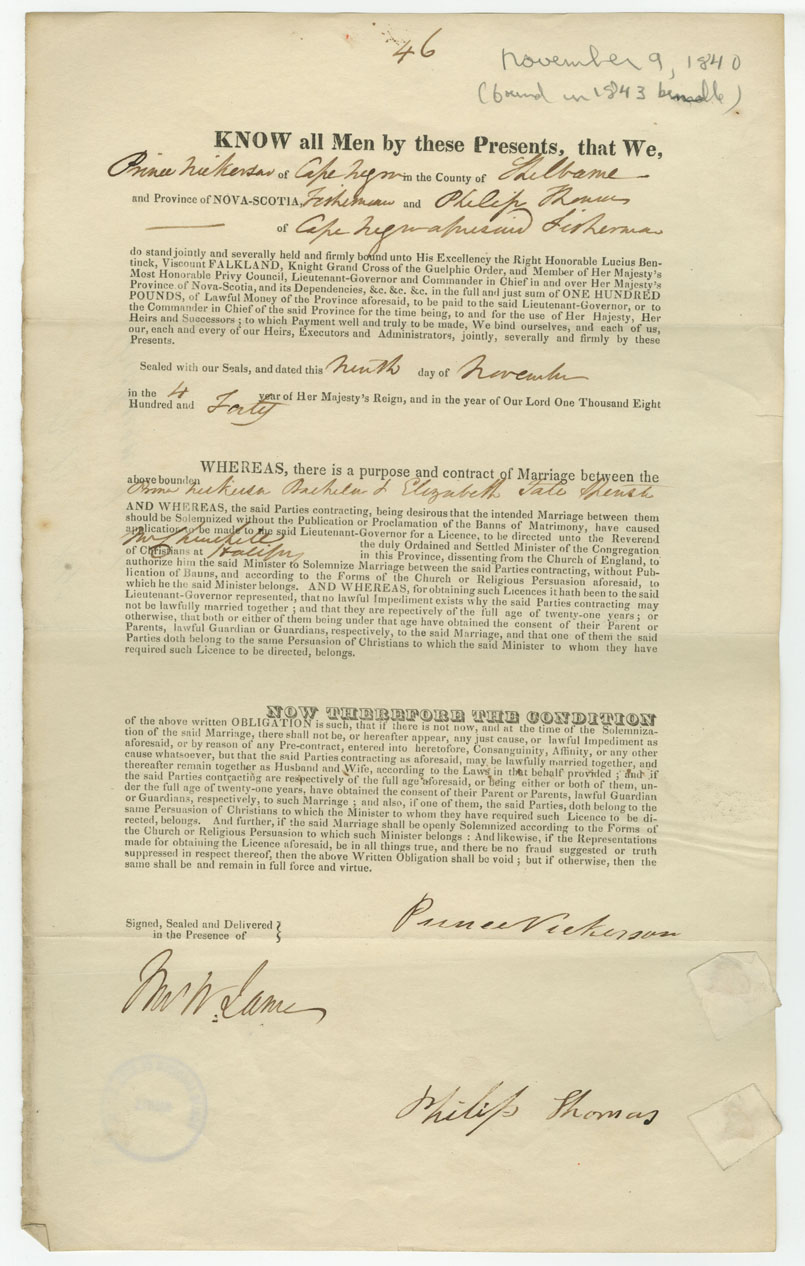 46
November 9, 1840
(bound in 1843 bundle)
KNOW all Men by these Presents, that We,
Prince Nickerson of Cape Negro in the County of Shelburne
and Province of NOVA-SCOTIA, Fisherman and Philip Thomas
of Cape Negro aforesaid Fisherman
do stand jointly and severally held and firmly bound unto His Excellency the Right Honorable Lucius Ben-
tinck, Viscount FALKLAND, Knight Grand Cross of the Guelphic Order, and Member of Her Majesty's
Most Honorable Privy Council, Lieutenant-Governor and Commander in Chief in and over Her Majesty's
Province of Nova-Scotia, and its Dependencies, &c. &c. &c. in the full and just sum of ONE HUNDRED
POUNDS, of Lawful Money of the Province aforesaid, to be paid to the said Lieutenant-Governor, or to
the Commander in Chief of the said Province for the time being, to and for the use of Her Majesty, Her
Heirs and Successors ; to which Payment well and truly to be made, We bind ourselves, and each of us,
our, each and every of our Heirs, Executors and Administrators, jointly, severally and firmly by these
Presents.
Sealed with our Seals, and dated this Ninth day of November
in the 4 year of Her Majesty's Reign, and in the year of Our Lord One Thousand Eight
Hundred and Forty
WHEREAS, there is a purpose and contract of Marriage between the
above bounden Prince Nickerson Bachelor & Elizabeth Tale Spinster
AND WHEREAS, the said Parties contracting, being desirous that the intended Marriage between them
should be Solemnized without the Publication or Proclamation of the Banns of Matrimony, have caused
application to be made to the said Lieutenant-Governor for a Licence, to be directed unto the Reverend
the duly Ordained and Settled Minister of the Congregation
of Christians at Halifax in this Province, dissenting from the Church of England, to
authorize him the said Minister to Solemnize Marriage between the said Parties contracting, without Pub-
lication of Banns, and according to the Forms of the Church or Religious Persuasion aforesaid, to
which he the said Minister belongs. AND WHEREAS, for obtaining such Licences it hath been to the said
Lieutenant-Governor represented, that no lawful Impediment exists why the said Parties contracting may
not be lawfully married together ; and that they are repectively of the full age of twenty-one years ; or
otherwise, that both or either of them being under that age have obtained the consent of their Parent or
Parents, lawful Guardian or Guardians, respectively, to the said Marriage, and that one of them the said
Parties doth belong to the same Persuasion of Christians to which the said Minister to whom they have
required such Licence to be directed, belongs.
NOW THEREFORE THE CONDITION
of the above written OBLIGATION is such, that if there is not now, and at the time of the Solemniza-
tion of the said Marriage, there shall not be, or hereafter appear, any just cause, or lawful Impediment as
aforesaid, or by reason of any Pre-contract, entered into heretofore, Consanguinity, Affinity, or any other
cause whatsoever, but that the said Parties contracting as aforesaid, may be lawfully married together, and
thereafter remain together as Husband and Wife, according to the Laws in that behalf provided ; and if
the said Parties contracting are respectively of the full age aforesaid, or being either or both of them, un-
der the full age of twenty-one years, have obtained the consent of their Parent or Parents, lawful Guardian
or Guardians, respectively, to such Marriage ; and also, if one of them, the said Parties, doth belong to the
same Persuasion of Christians to which the Minister to whom they have required such Licence to be di-
rected, belongs. And further, if the said Marriage shall be openly Solemnized according to the Forms of
the Church or Religious Persuasion to which such Minister belongs : And likewise, if the Representations
made for obtaining the Licence aforesaid, be in all things true, and there be no fraud suggested or truth
suppressed in respect thereof, then the above Written Obligation shall be void ; but if otherwise, then the
same shall be and remain in full force and virtue.
Signed, Sealed and Delivered
in the Presence of
Prince Nickerson
Wm W. James
Philip Thomas